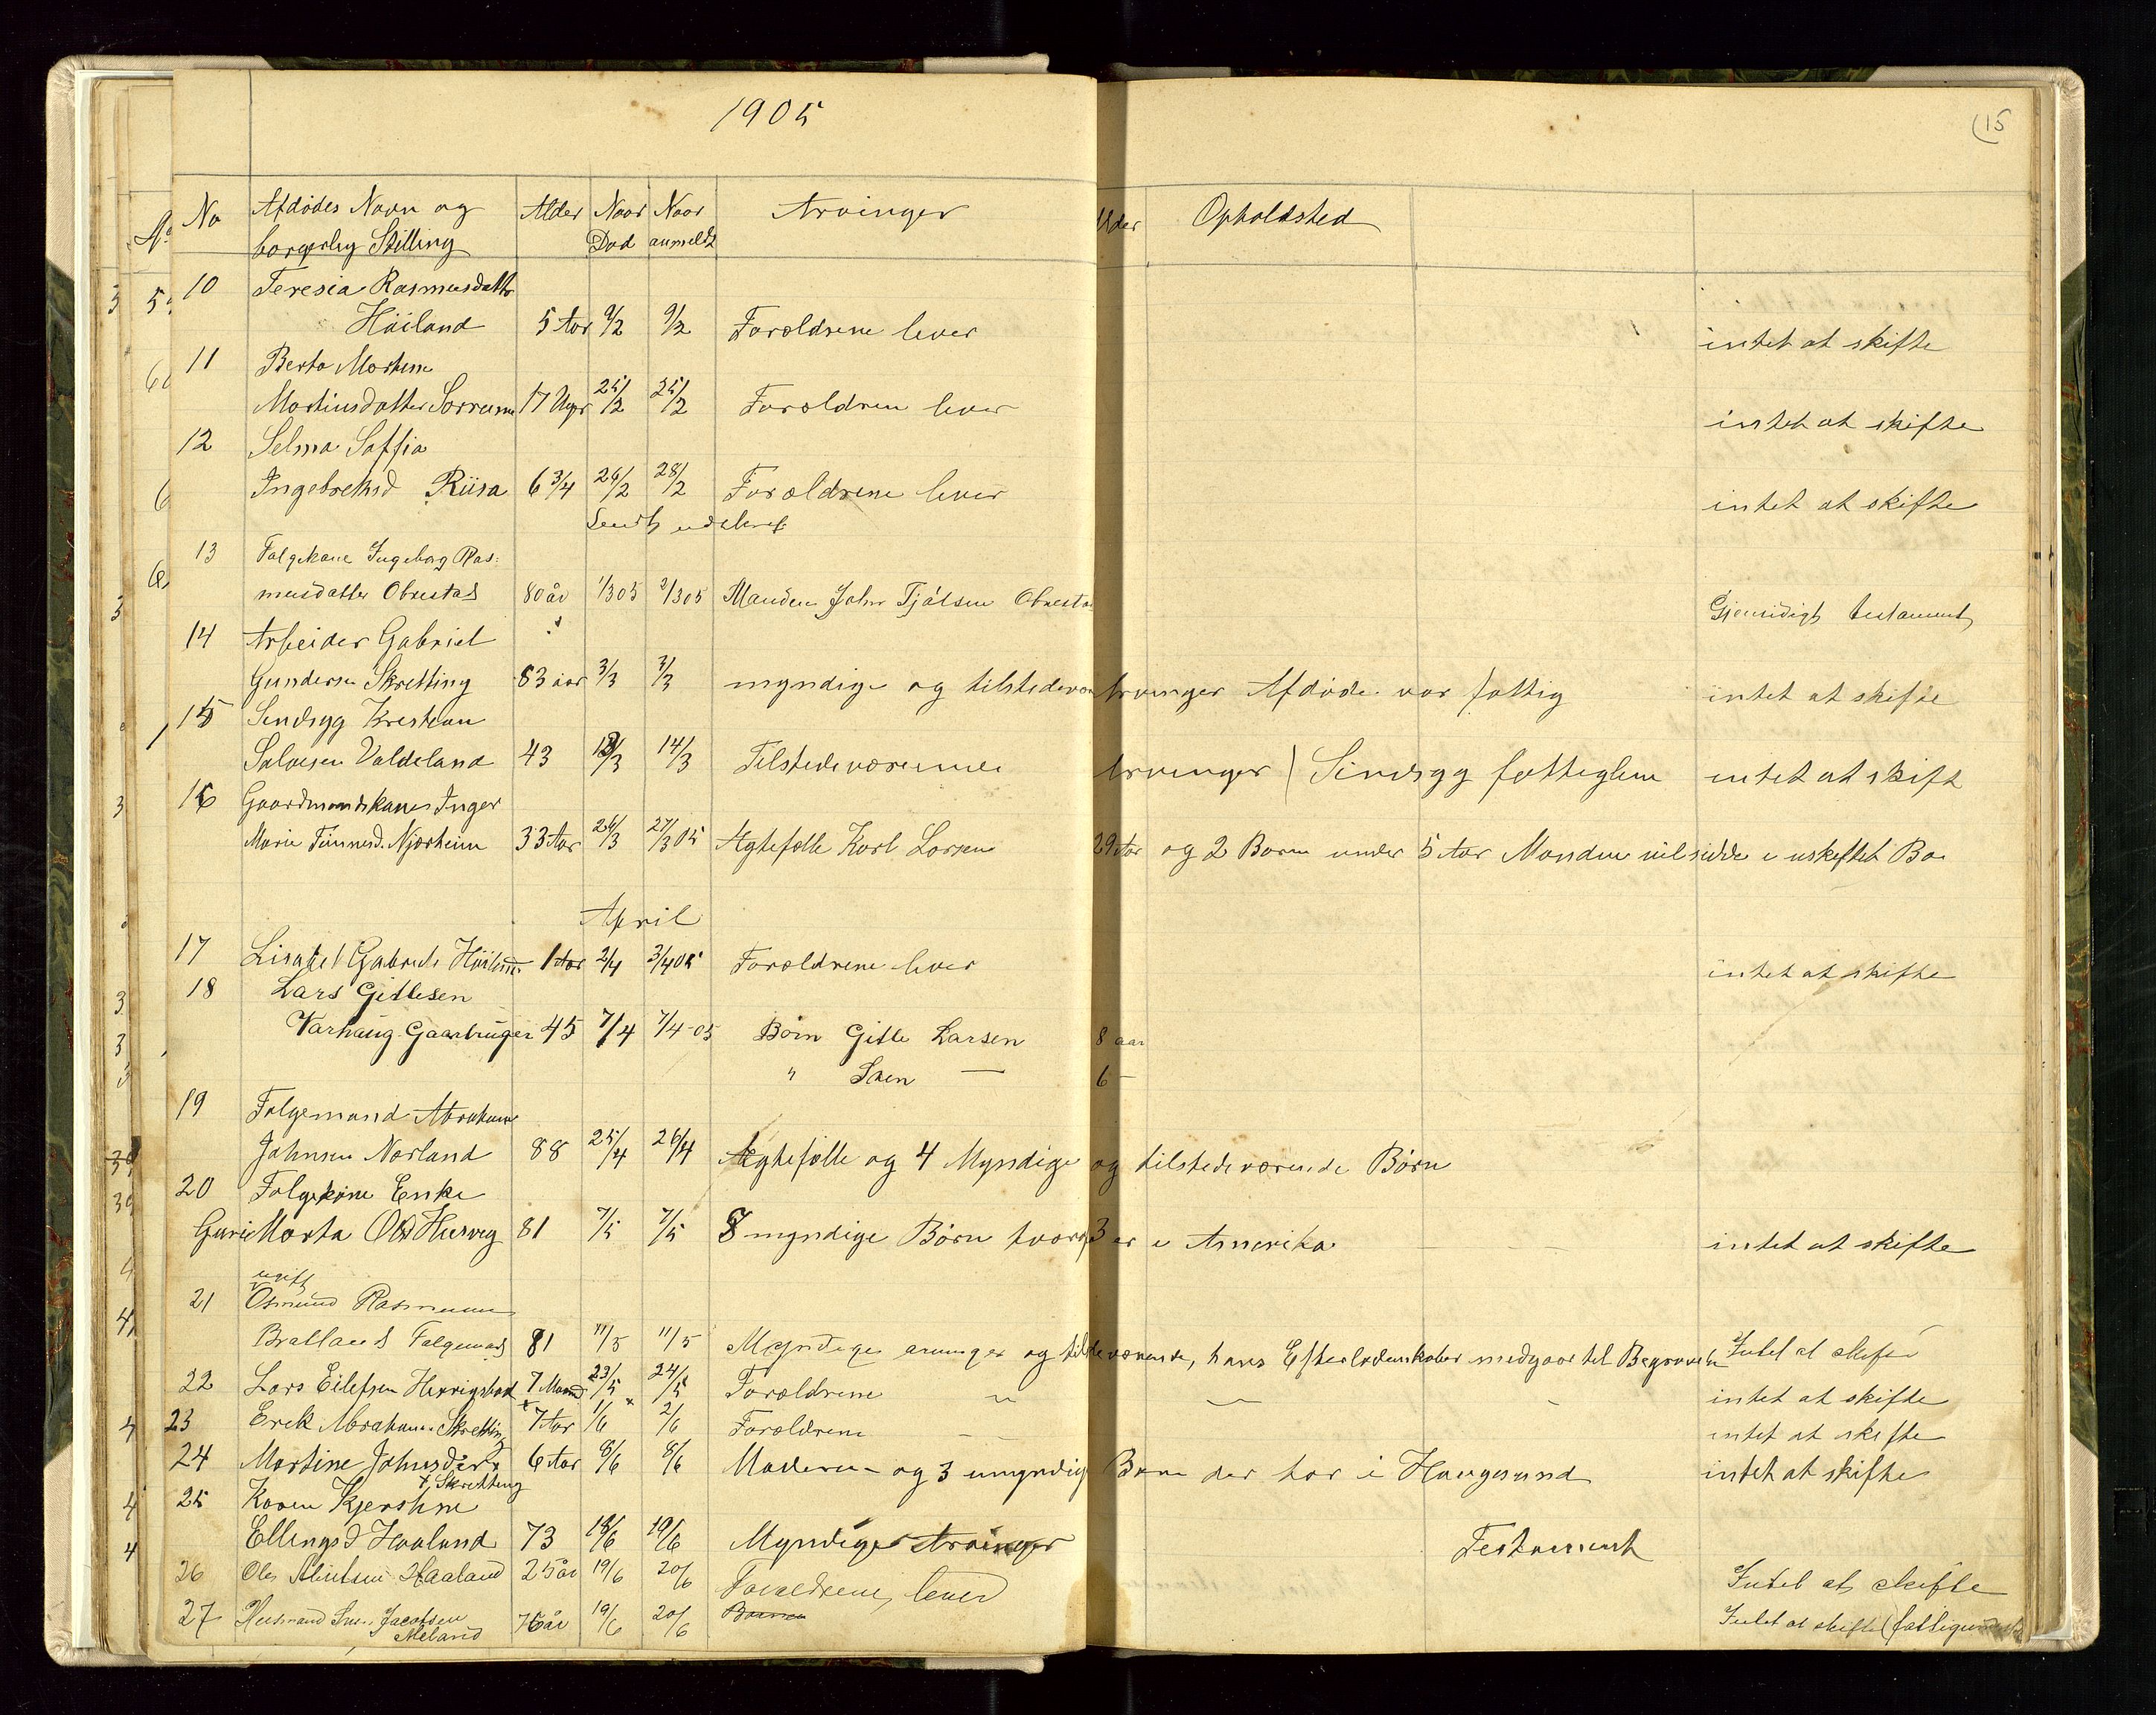 1905
15
No Afdødes Navn og Alder Naar Naar Arvinger Alder Opholdsted
borgerlig Stilling Død anmeldt
10 Teresia Rasmusdattr
Høiland 5 Aar 9/2 9/2 Foræeldrene lever intet at skifte
11 Berta Martine
Martinsdatter Sørrum 17 Uger 25/2 25/2 Forældren lever intet at skifte
12 Selma Soffia
Ingebretsd Riisa 6 3/4 26/2 28/2 Forældrene lever intet at skifte
Sendt udskrift
13 Folgekone Ingeborg Ras:
musdatter Obrestad 80 år 1/3 05 2/3 05 Manden John Tjølsen Obrestad Gjensidigt testament
14 Arbeider Gabriel
Gundersen Skretting 83 aar 3/3 3/3 myndige og tilstedevær Arvinger Afdøde var fattig intet at skifte
15 Sindsyg Krestian
Salvesen Valdeland 43 12/3 14/3 Tilstedeværende Arvinger Sindsyg fatteglem intet at skift
16 Gaardmandskone Inger
Marie Tønnesd. Njærheim 33 Aar 26/3 27/3 05 Ægtefælle Karl Larsen 29 Aar og 2 Børn under 5 Aar Manden vil sidde i uskiftet Bo
April
17 Lisabet Gabriels Høiland 1 Aar 2/4 3/4 05 Forældrene lever intet at skifte
18 Lars Gitlesen
Varhaug Gaarbruger 45 7/4 7/4-05 Børn Gitle Larsen 8 aar
" Sven — 6 –
19 Folgemand Abraham
Johnsen Nærland 88 25/4 26/4 Ægtefælle og 4 Myndige og tilstedeværende Børn
20 Folgekone Enke
Guri Marta Olsd Hersvig 81 7/5 7/5 8 myndige Børn hvoraf 3 er i Amerika intet at skifte
ugift
21 Osmund Rasmussen
Bratland Folgemand 81 11/5 11/5 Myndige arvinger og tilstedeværende, hans Efterladenskaber medgaar til Begravelse Intet at skifte
22 Lars Eilefsen Herrigstad 7 Maand 23/5 24/5 Forældrene intet at skifte
23 Erek Abrahams. Skretting 7 Aar 1/6 2/6 Forældrene intet at skifte
24 Martine Johnsdtr x 6 Aar 8/6 8/6 Moderen og 3 umyndige Børn der bor i Haugesund intet at skifte
x Skretting
25 Karen Kjerstine
Ellingsd Haaland 73 18/6 19/6 Myndige Arvinger Testament
26 Ole Haaland 25 år 19/6 20/6 Forældrene lever Intet at skifte
27 Husmand Jacobsen 76 år 19/6 20/6 Børnen Intet at skifte (
Meland